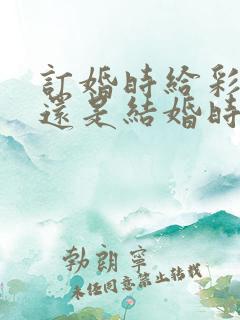 訂婚時給彩
還是結婚時
勃朗寧
未经同意禁止转载